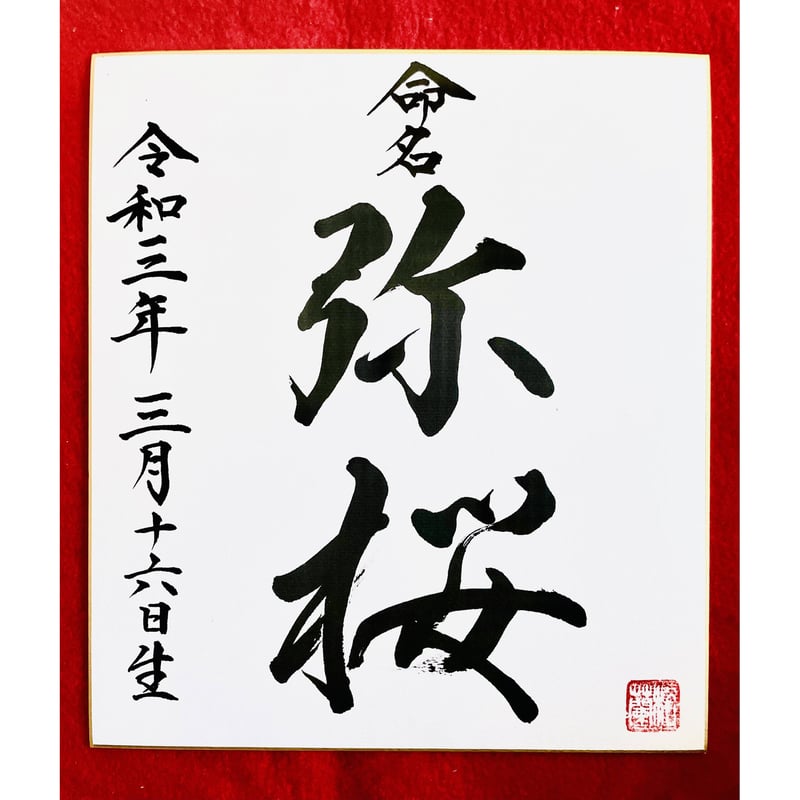 命名
弥桜
令和三年 三月十六日生